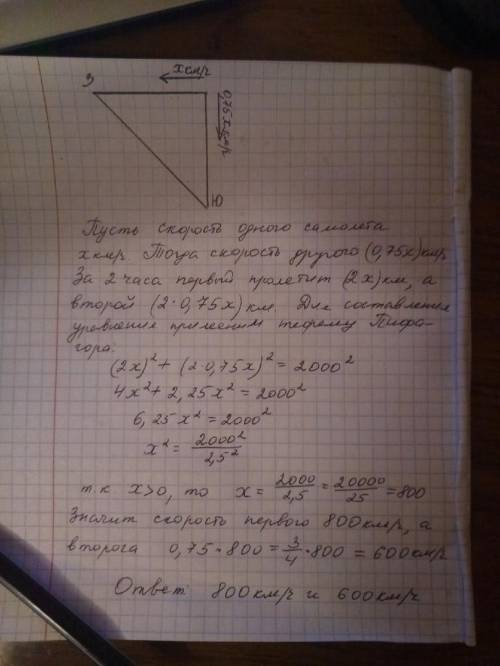 З
x км/ч
0,75x км/ч
Ю
Пусть скорость одного самолета
x км/ч. Тогда скорость другого (0,75x) км/ч
За 2 часа первый пролетит (2x) км, а
второй (2·0,75x) км. Для составления
уравнения применим теорему Пифа-
гора.
(2x)² + (2·0,75x)² = 2000²
4x² + 2,25x² = 2000²
6,25x² = 2000²
x² = 2000²/2,5²
т.к x>0, то x = 2000/2,5 = 20000/25 = 800
Значит скорость первого 800 км/ч, а
второго 0,75·800 = 3/4·800 = 600 км/ч
Ответ 800 км/ч и 600 км/ч